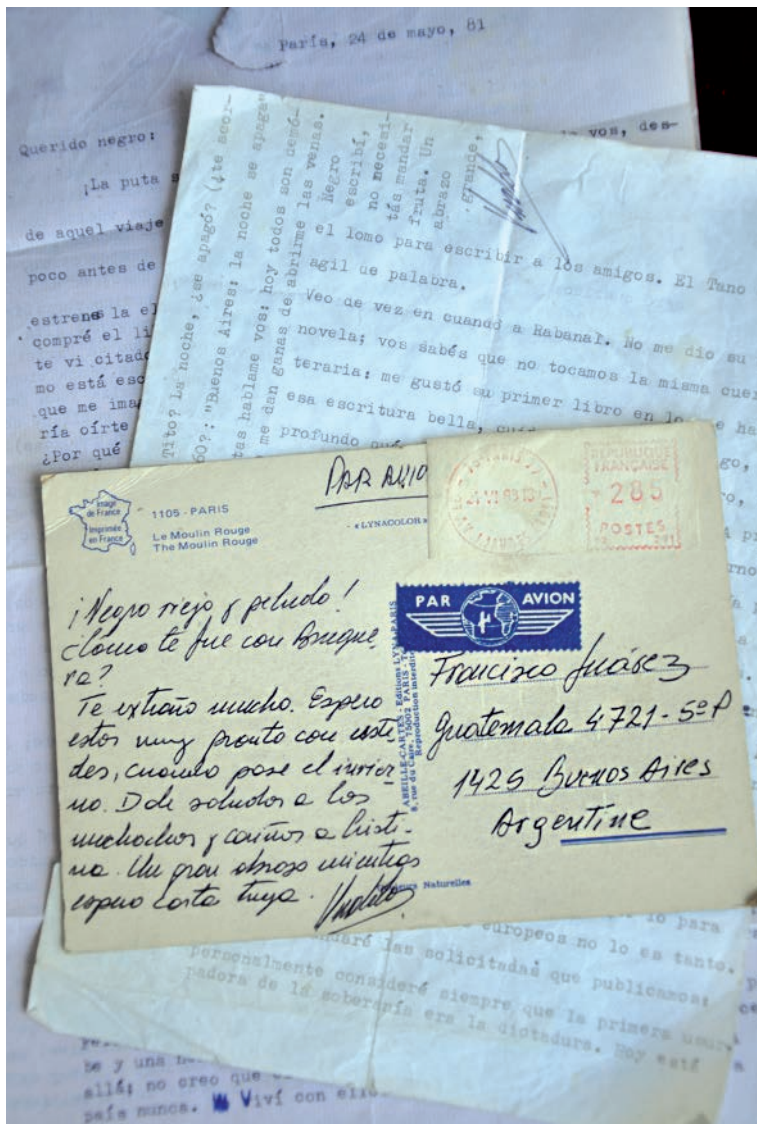 París, 24 de mayo, 81
Querido negro:
vos, des-
¡La puta
de aquel viaje
poco antes de
estrens la
compré el
te vi citado
mo está
que me
ría oírte
¿Por qué
Tito? La noche, ¿se apagó? (¿te acor-
"Buenos Aires: la noche se apaga"
hablame vos; hoy todos son demó-
me dan ganas de abrirme las venas.
Negro
escribí,
no necesi-
tás mandar
fruta. Un
abrazo
grande,
el lomo para escribir a los amigos. El Tano
agil ue palabra.
Veo de vez en cuando a Rabanal. No me dio su
novela; vos sabés que no tocamos la misma
teraria: me gustó su primer libro en
esa escritura bella,
profundo
Image
de France
Imprimée
en France
1105 - PARIS
Le Moulin Rouge
The Moulin Rouge
PAR AVIO
- « LYNACOLOR »
REPUBLIQUE
FRANÇAISE
285
POSTES
PAR AVION
¡Negro viejo y peludo!
¿Cómo te fue con Brugue-
ra?
Te extraño mucho. Espero
estar muy pronto con uste-
des, cuando pase el invier-
no. Dale saludos a los
muchachos y cariños a Cristi-
na. Un gran abrazo mientras
espero carta tuya.
ABEILLE-CARTES - Editions LYNA-PARIS
8, rue du Caire, 75002 PARIS
Reproduction interdite
Francisco Juárez
Guatemala 4721 - 5º P
1425 Buenos Aires
Argentine
Naturelles
lo para
europeos no lo es tanto.
las solicitadas que publicamos;
personalmente consideré siempre que la primera usur-
padora de la soberanía era la dictadura. Hoy está
be y una
allá; no creo que
país nunca. Viví con